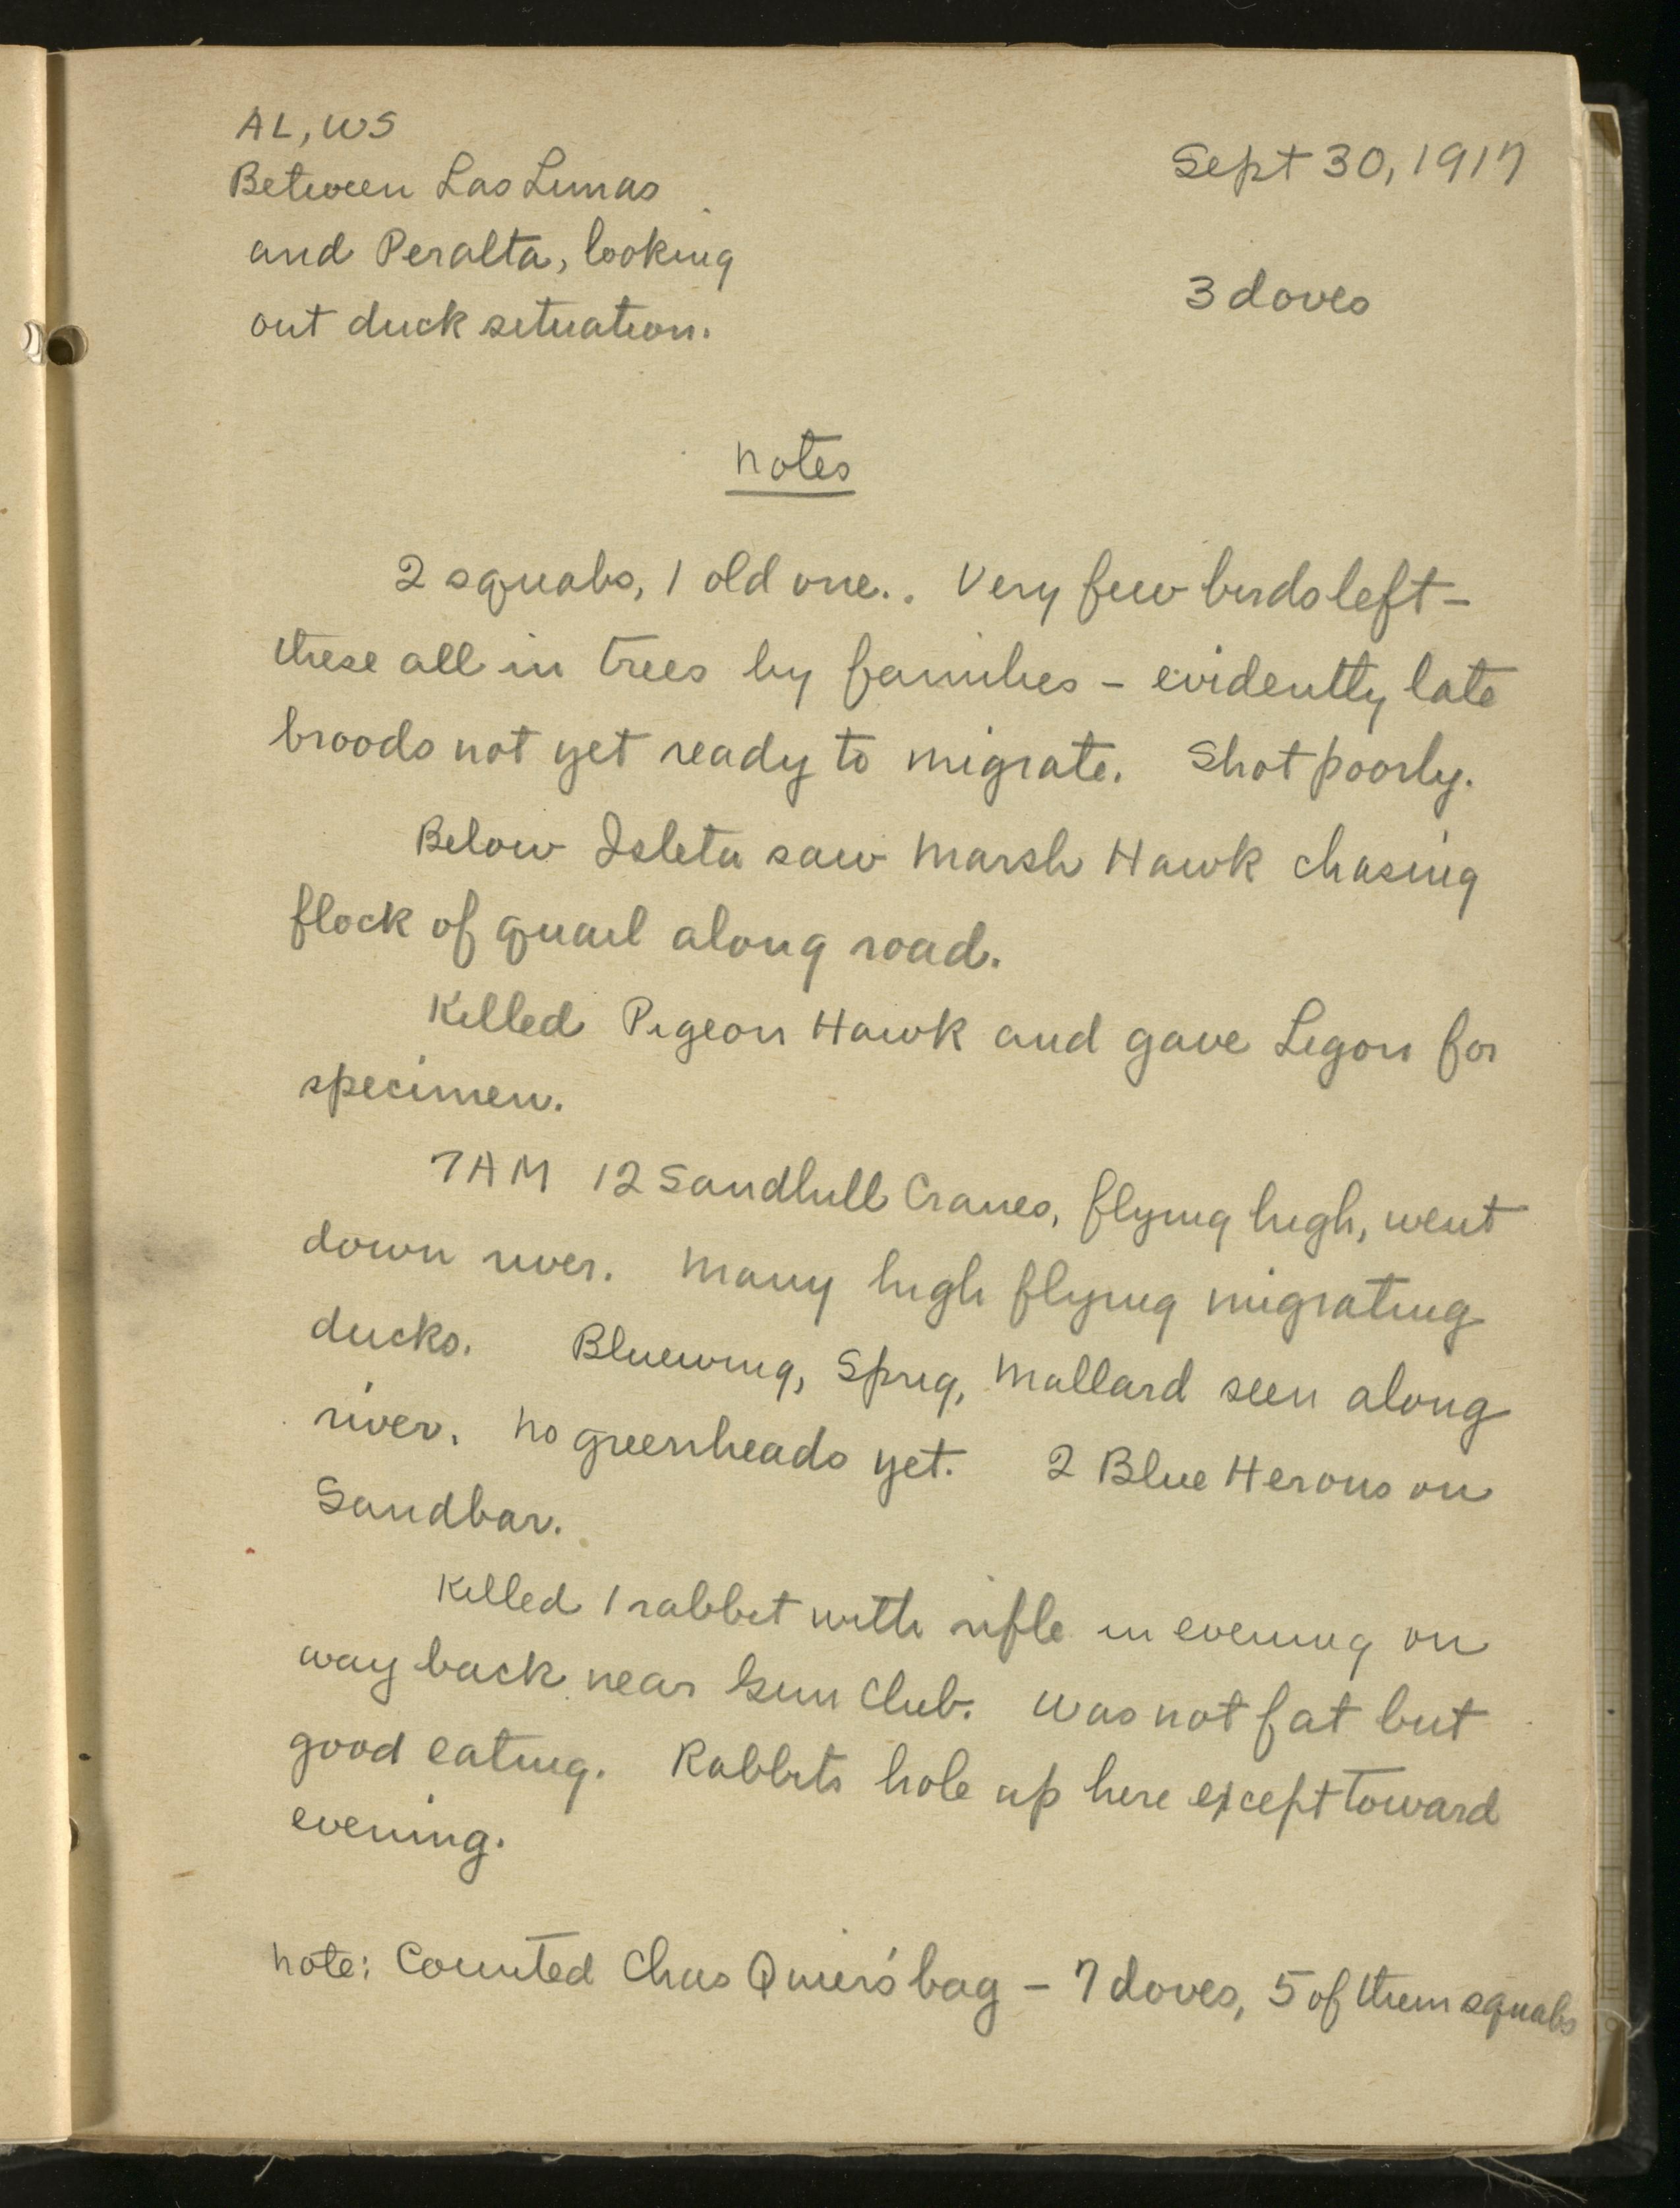 AL, WS
Sept 30, 1917
Between Las Lunas
and Peralta, looking
3 doves
out duck situation.
Notes
2 squabs, 1 old one.. Very few birds left –
these all in trees by families – evidently late
broods not yet ready to migrate. Shot poorly.
Below Isleta saw Marsh Hawk chasing
flock of quail along road.
Killed Pigeon Hawk and gave Ligon for
specimen.
7AM 12 Sandhill Cranes, flying high, went
down river. Many high flying migrating
ducks. Bluewing, Sprig, Mallard seen along
river. No greenheads yet. 2 Blue Herons on
Sandbar.
Killed 1 rabbit with rifle in evening on
way back near Gun Club. Was not fat but
good eating. Rabbits hole up here except toward
evening.
Note: Counted Chas Quier's bag – 7 doves, 5 of them squabs